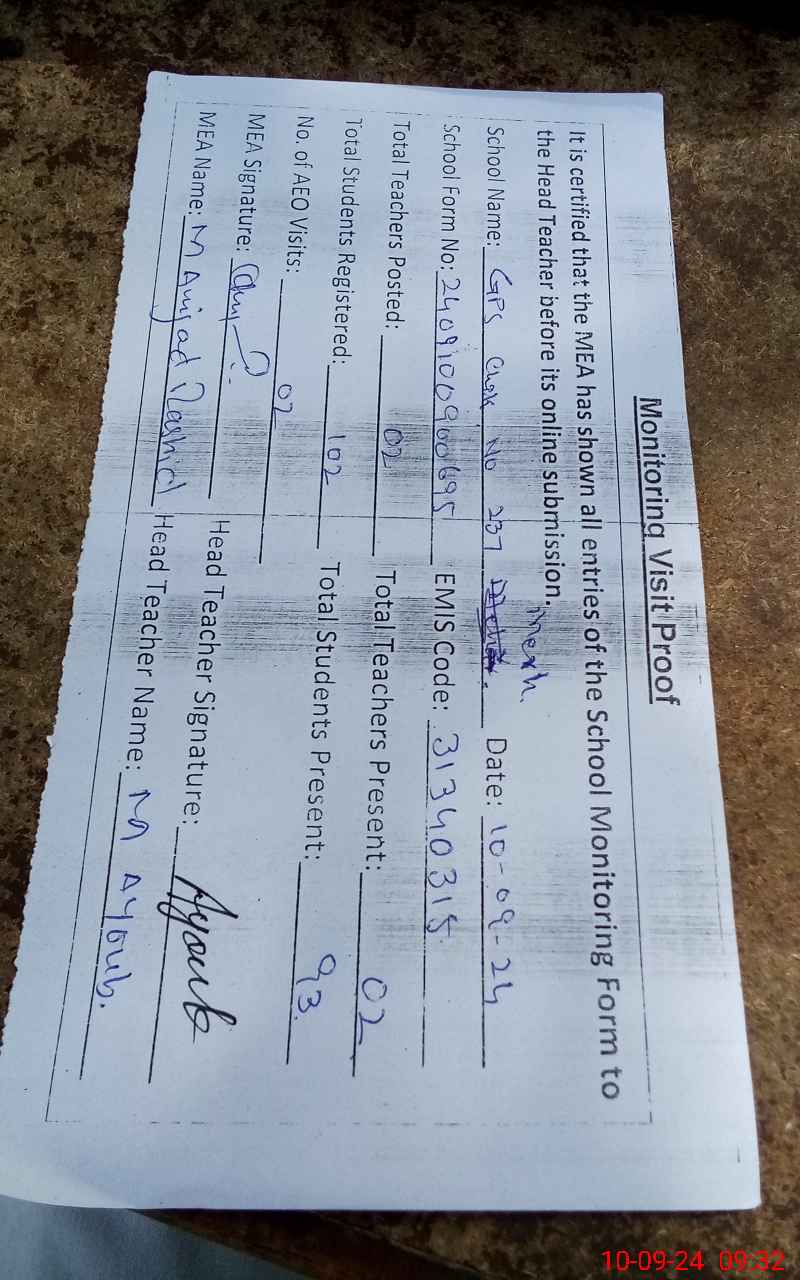 Monitoring Visit Proof
It is certified that the MEA has shown all entries of the School Monitoring Form to
the Head Teacher before its online submission.
School Name: GPS Chak No 237 Date: 10-09-24
School Form No: 2409100900695 EMIS Code: 31340315
Total Teachers Posted: 02 Total Teachers Present: 02
Total Students Registered: 102 Total Students Present: 93
No. of AEO Visits: 02
MEA Signature: Head Teacher Signature: Ayoub
MEA Name: M Amjad Rashid Head Teacher Name: M Ayoub.
10-09-24 09:32